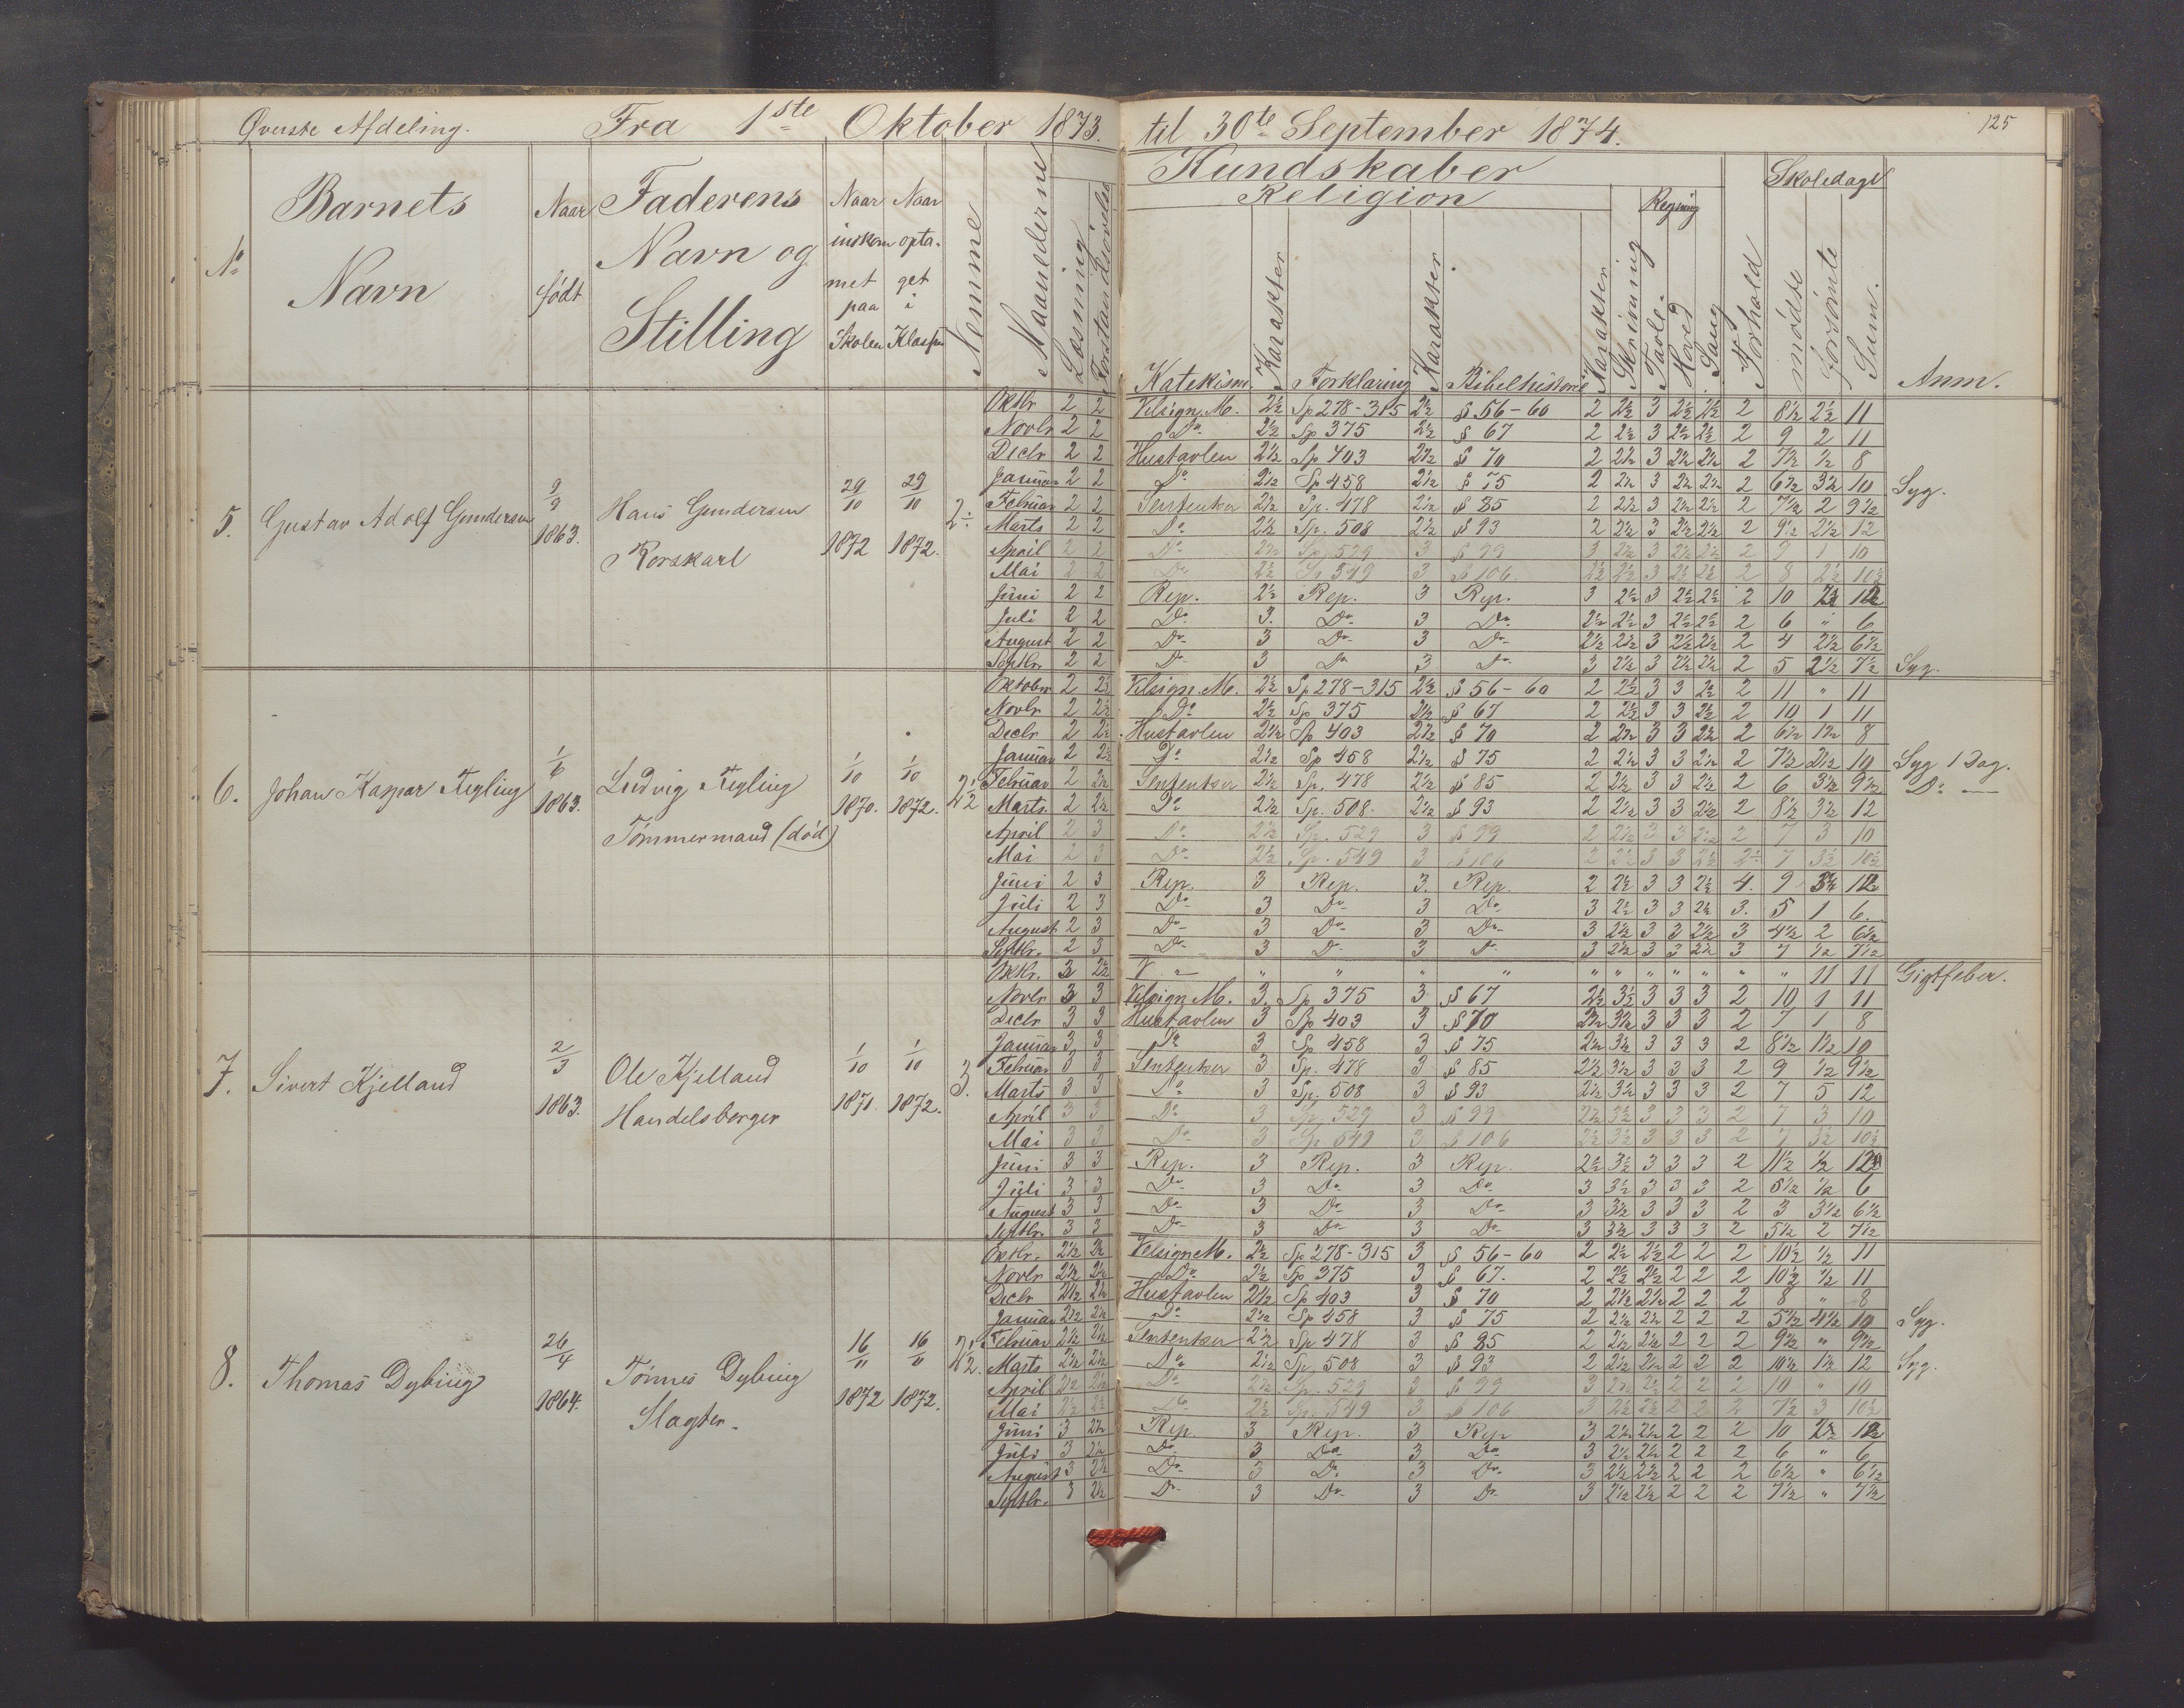 Øverste Afdeling. Fra 1ste Oktober 1873. til 30te September 1874. 125
No Barnets Navn Naar født Faderens Navn og Stilling Naar indkommet paa Skolen Naar optaget i Klassen Nemme Maanederne Læsning Forstandsøvelse
Kundskaber Skoledage
Religion Regning
Katekism. Karakter Forklaring Karakter. Bibelhistorie Karakter Skrivning Tavle. Hoved Sang Forhold mødte forsømte Sum. Anm.
5. Gustav Adolf Gundersen 9/9 1863. Hans Gundersen Rorskarl 29/10 1872 29/10 1872. 2÷
Oktbr 2 2 Velsign. M. 2½ Sp 278-315 2½ § 56-60 2 2½ 3 2½ 2½ 2 8½ 2½ 11
Novbr 2 2 Do 2½ Sp 375 2½ § 67 2 2½ 3 2½ 2½ 2 9 2 11
Decbr 2 2 Hustavlen 2½ Sp 403 2½ § 70 2 2½ 3 2½ 2½ 2 7½ ½ 8
Januar 2 2 Do 2½ Sp 458 2½ § 75 2 2½ 3 2½ 2½ 2 6½ 3½ 10 Syg.
Februar 2 2 Sententser 2½ Sp. 478 2½ § 85 2 2½ 3 2½ 2½ 2 7½ 2 9½
Marts 2 2 Do 2½ Sp. 508 2½ § 93 2 2½ 3 2½ 2½ 2 9½ 2½ 12
April 2 2 Do 2½ Sp. 529 3 § 99 3 2½ 3 2½ 2½ 2 9 1 10
Mai 2 2 Do 2½ Sp 549 3 § 106. 2½ 2½ 3 2½ 2½ 2 8 2½ 10½
Juni 2 2 Rep. 2½ Rep. 3 Rep. 3 2½ 3 2½ 2½ 2 10
Juli 2 2 Do 3. Do 3 Do 2½ 2½ 3 2½ 2½ 2 6 " 6
August 2 2 Do 3 Do 3 Do 2½ 2½ 3 2½ 2½ 2 4 2½ 6½
Septbr. 2 2 Do 3 Do 3 Do 3 2½ 3 2½ 2½ 2 5 2½ 7½ Syg.
6. Johan Kaspar Tegling 1/6 1863. Ludvig Tegling Tømmermand (død) 1/10 1870. 1/10 1872. 2½
Oktober 2 2½ Velsign. M. 2½ Sp 278-315 2½ § 56-60 2 2½ 3 3 2½ 2 11 " 11
Novbr 2 2½ Do 2½ Sp 375 2½ § 67 2 2½ 3 3 2½ 2 10 1 11
Decbr 2 2½ Hustavlen 2½ Sp 403 2½ § 70 2 2½ 3 3 2½ 2 6½ 1½ 8
Januar 2 2½ Do 2½ Sp 458 2½ § 75 2 2½ 3 3 2½ 2 7½ 2½ 10 Syg 1 Dag.
Februar 2 2½ Sententser 2½ Sp. 478 2½ § 85 2 2½ 3 3 2½ 2 6 3½ 9½ Do —
Marts. 2 2½ Do 2½ Sp. 508. 2½ § 93 2 2½ 3 3 2½ 2 8½ 3½ 12
April 2 3 Do 2½ Sp. 529 3 § 99 2 2½ 3 3 2½ 2 7 3 10
Mai 2 3 Do 2½ Sp. 549 3 § 106 2 2½ 3 3 2½ 2÷ 7 3½ 10½
Juni 2 3 Rep. 3 Rep. 3. Rep. 2 2½ 3 3 2½ 4. 9
Juli 2 3 Do 3 Do 3 Do 3 2½ 3 3 2½ 3. 5 1 6.
August 2 3 Do 3 Do 3 Do 3 2½ 3 3 2½ 3 4½ 2 6½
Septbr. 2 3 Do 3 Do 3 Do 3 2½ 3 3 2½ 3 7 ½ 7½
7. Sivert Kjelland 2/3 1863. Ole Kjelland Handelsborger 1/10 1871. 1/10 1872. 3.
Oktbr. 3 2½ " " " " " " " " " " " " 11 11 Gigtfeber.
Novbr 3 3 Velsign M. 3. Sp 375 3 § 67 2½ 3½ 3 3 3 2 10 1 11
Decbr 3 3 Hustavlen 3 Sp 403 3 § 70 2½ 3½ 3 3 3 2 7 1 8
Januar 3 3 Do 3 Sp 458 3 § 75 2½ 3½ 3 3 3 2 8½ 1½ 10
Februar 3 3 Sententser 3 Sp. 478 3 § 85 2½ 3½ 3 3 3 2 9 ½ 9½
Marts 3 3 Do 3 Sp. 508 3 § 93 2½ 3½ 3 3 3 2 7 5 12
April 3 3 Do 3 Sp. 529 3 § 99 2½ 3½ 3 3 3 2 7 3 10
Mai 3 3 Do 3 Sp 549 3 § 106 2½ 3½ 3 3 3 2 7 3½ 10½
Juni 3 3 Rep. 3 Rep. 3 Rep. 2½ 3½ 3 3 3 2 11½ ½ 12
Juli 3 3 Do 3 Do 3 Do 3 3½ 3 3 3 2 5½ ½ 6
August 3 3 Do 3 Do 3 Do 3 3½ 3 3 3 2 3 3½ 6½
Septbr. 3 3 Do 3 Do 3 Do 3 3½ 3 3 3 2 5½ 2 7½
8. Thomas Dybing 26/4 1864. Tønnes Dybing Slagter. 16/11 1872 16/11 1872. 2½.
Oktbr. 2½ 2½ Velsign M. 2½ Sp 278-315 3 § 56-60 2 2½ 2½ 2 2 2 10½ ½ 11
Novbr 2½ 2½ Do 2½ Sp 375 3 § 67. 2 2½ 2½ 2 2 2 10½ ½ 11
Decbr 2½ 2½ Hustavlen 2½ Sp 403 3 § 70 2 2½ 2½ 2 2 2 8 " 8
Januar 2½ 2½ Do 2½ Sp 458 3 § 75 2 2½ 2½ 2 2 2 5½ 4½ 10 Syg.
Februar 2½ 2½ Sententser 2½ Sp 478 3 § 85 2 2½ 2½ 2 2 2 9½ " 9½
Marts 2½ 2½ Do 2½ Sp. 508 3 § 93 2 2½ 2½ 2 2 2 10½ 1½ 12 Syg.
April 2½ 2½ Do 2½ Sp. 529 3 § 99 3 2½ 2½ 2 2 2 10 " 10
Mai 2½ 2½ Do 2½ Sp. 549 3 § 106 3 2½ 2½ 2 2 2 7½ 3 10½
Juni 3 2½ Rep 3 Rep. 3 Rep 3 2½ 2½ 2 2 2 10
Juli 3 2½ Do 3 Do 3 Do 3 2½ 2½ 2 2 2 6 " 6
August 3 2½ Do 3 Do 3 Do 3 2½ 2½ 2 2 2 6½ " 6½
Septbr. 3 2½ Do 3 Do 3 Do 3 2½ 2½ 2 2 2 7½ " 7½